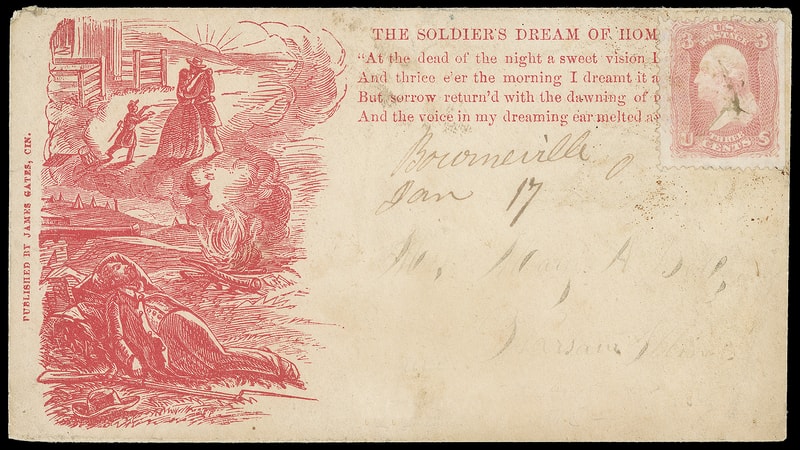 THE SOLDIER'S DREAM OF HOM
"At the dead of the night a sweet vision I
And thrice e'er the morning I dreamt it a
But sorrow return'd with the dawning of
And the voice in my dreaming ear melted a
3 U.S. POSTAGE 3
U THREE S
CENTS
Bourneville O
Jan 17
PUBLISHED BY JAMES GATES, CIN.